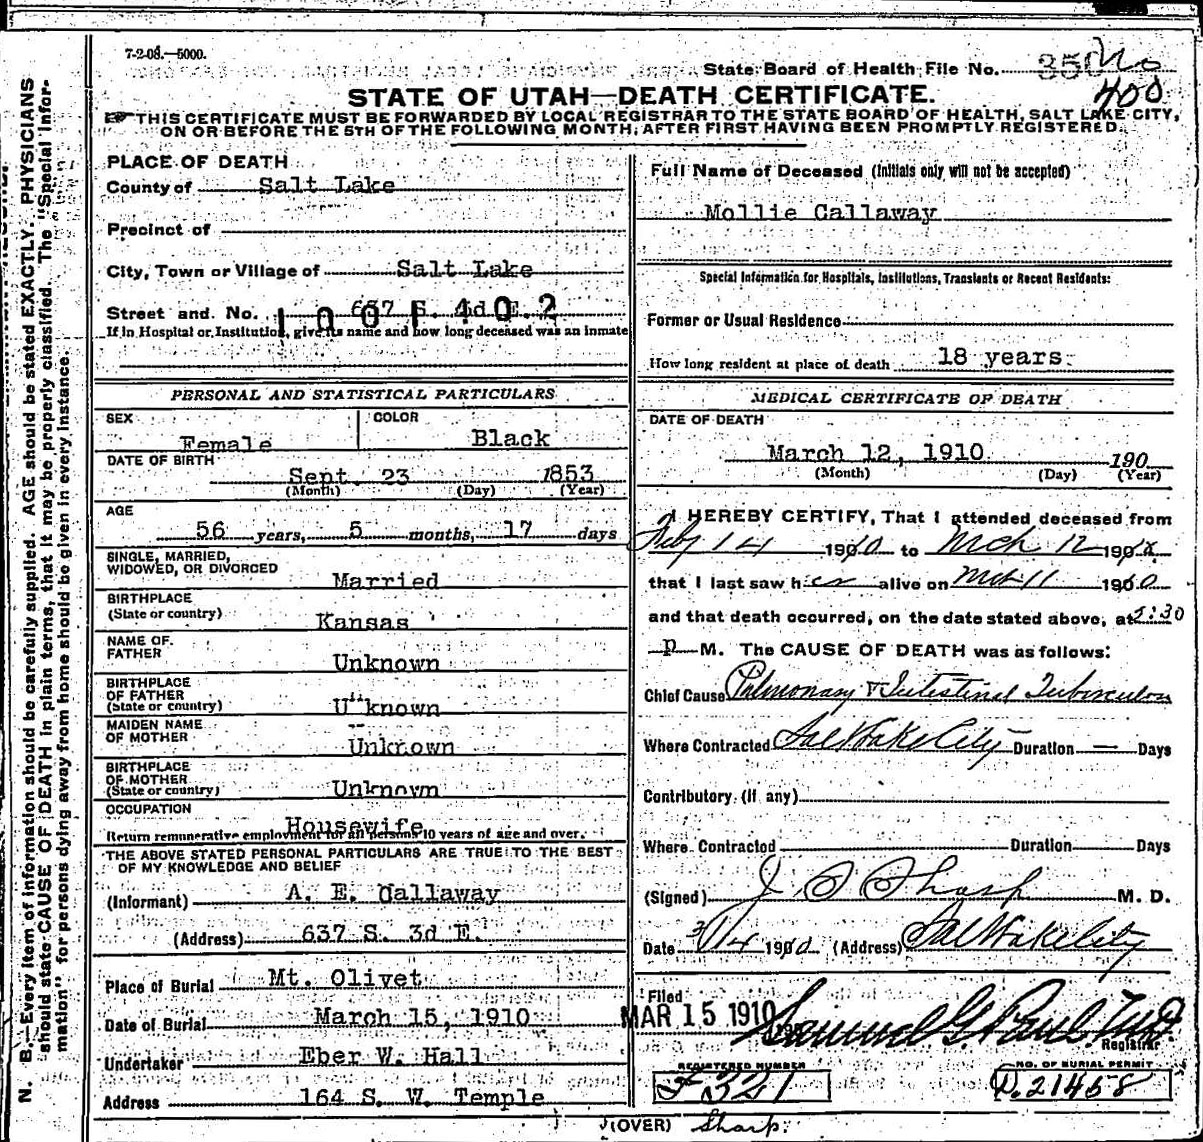 7-2-08.—5000.
State Board of Health File No. 350
400
STATE OF UTAH—DEATH CERTIFICATE.
THIS CERTIFICATE MUST BE FORWARDED BY LOCAL REGISTRAR TO THE STATE BOARD OF HEALTH, SALT LAKE CITY,
ON OR BEFORE THE 5TH OF THE FOLLOWING MONTH, AFTER FIRST HAVING BEEN PROMPTLY REGISTERED.
N. B.—Every item of information should be carefully supplied. AGE should be stated EXACTLY. PHYSICIANS
should state CAUSE OF DEATH in plain terms, that it may be properly classified. The "Special Infor-
mation" for persons dying away from home should be given in every instance.
PLACE OF DEATH
County of Salt Lake
Precinct of
City, Town or Village of Salt Lake
Street and No. 637 S. 3d E.
1001402
If in Hospital or Institution, give its name and how long deceased was an inmate
PERSONAL AND STATISTICAL PARTICULARS
SEX COLOR
Female Black
DATE OF BIRTH
Sept. 23 1853
(Month) (Day) (Year)
AGE
56 years, 5 months, 17 days
SINGLE, MARRIED,
WIDOWED, OR DIVORCED
Married
BIRTHPLACE
(State or country)
Kansas
NAME OF
FATHER
Unknown
BIRTHPLACE
OF FATHER
(State or country)
Unknown
MAIDEN NAME
OF MOTHER
Unknown
BIRTHPLACE
OF MOTHER
(State or country)
Unknown
OCCUPATION
Housewife
Return remunerative employment for all persons 10 years of age and over.
THE ABOVE STATED PERSONAL PARTICULARS ARE TRUE TO THE BEST
OF MY KNOWLEDGE AND BELIEF
(Informant) A. E. Callaway
(Address) 637 S. 3d E.
Place of Burial Mt. Olivet
Date of Burial March 15, 1910
Undertaker Eber W. Hall
Address 164 S. W. Temple
Full Name of Deceased (Initials only will not be accepted)
Mollie Callaway
Special Information for Hospitals, Institutions, Transients or Recent Residents:
Former or Usual Residence
How long resident at place of death 18 years.
MEDICAL CERTIFICATE OF DEATH
DATE OF DEATH
March 12, 1910 190
(Month) (Day) (Year)
I HEREBY CERTIFY, That I attended deceased from
Feby 14 1910 to Mch 12 190
that I last saw her alive on Mch 11 1910
and that death occurred, on the date stated above, at 5:30
p M. The CAUSE OF DEATH was as follows:
Chief Cause Pulmonary & Intestinal Tuberculos
Where Contracted Salt Lake City Duration — Days
Contributory (if any)
Where Contracted Duration Days
(Signed) J. F. Sharp M. D.
Date 3/14 1910 (Address) Salt Lake City
Filed
MAR 15 1910 Samuel G. Paul M.D.
Registrar
REGISTERED NUMBER NO. OF BURIAL PERMIT
F 321 D. 21458
(OVER) Sharp.